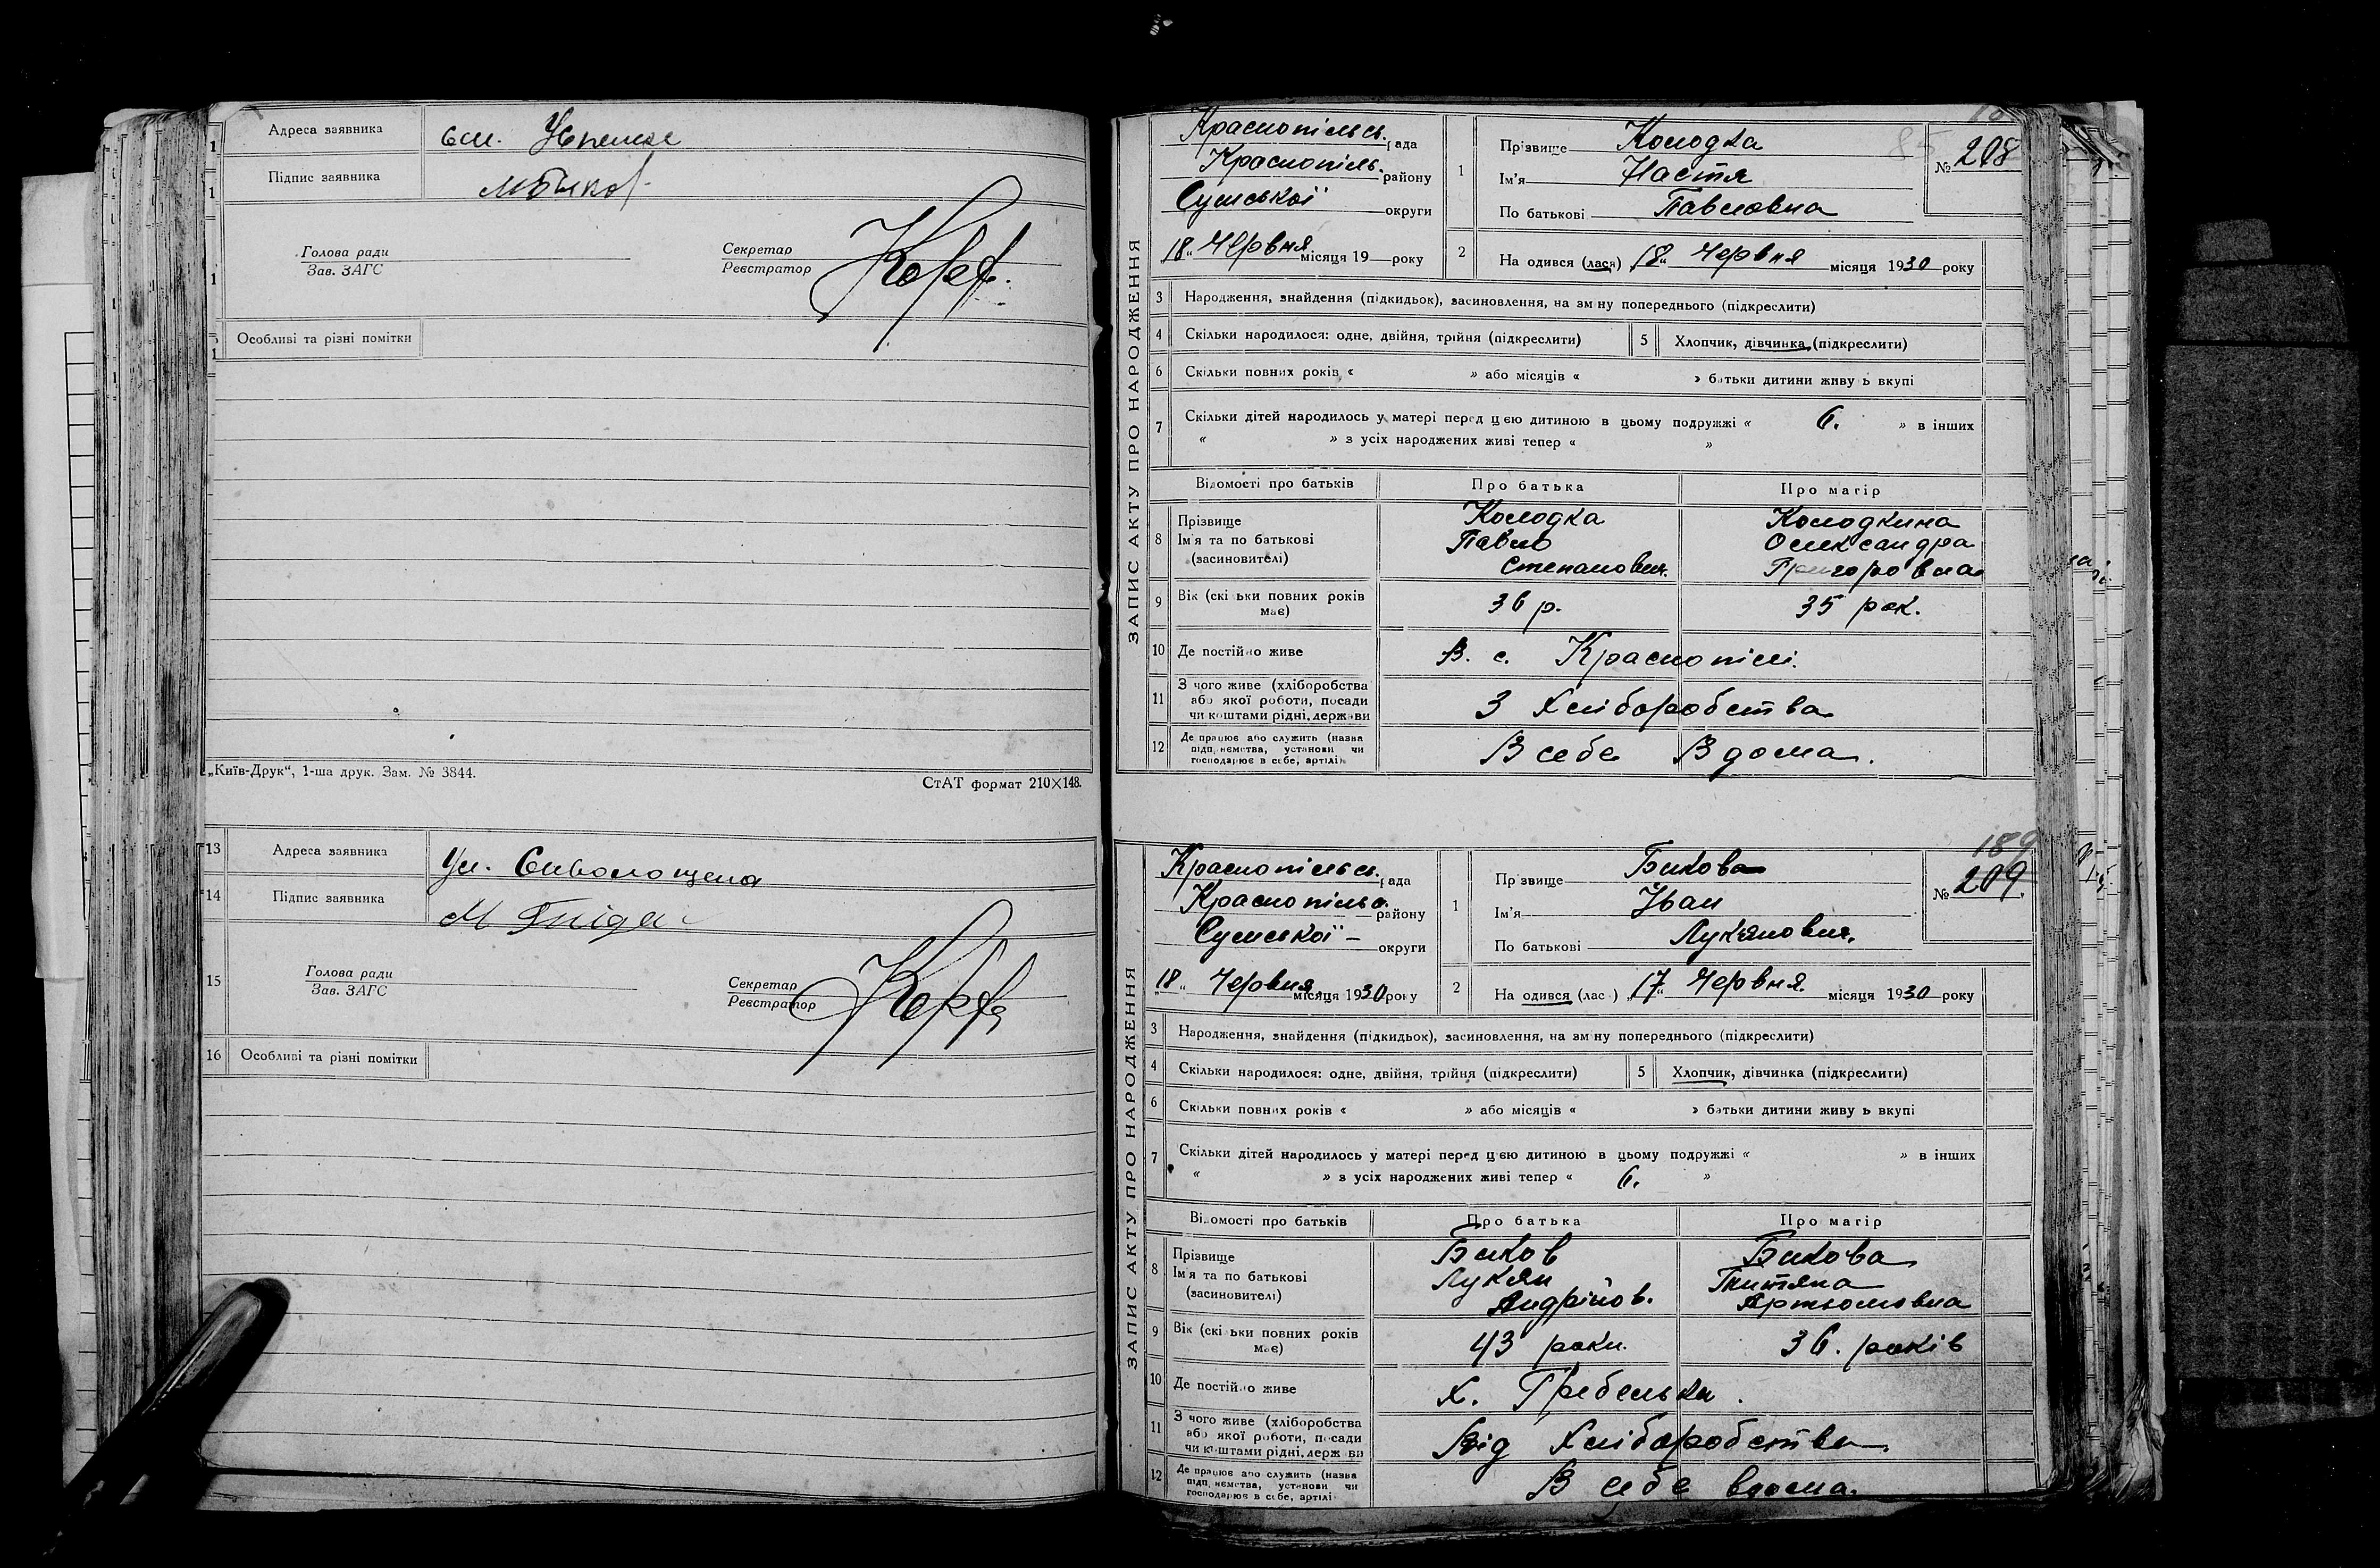 Адреса заявника
Підпис заявника
Голова ради
Зав. ЗАГС
Секретар
Реєстратор
Особливі та різні помітки
„Київ-Друк“, 1-ша друк. Зам. № 3844.
СтАТ формат 210×148.
13 Адреса заявника Ул.
14 Підпис заявника
15 Голова ради
Зав. ЗАГС
Секретар
Реєстратор
16 Особливі та різні помітки
ЗАПИС АКТУ ПРО НАРОДЖЕННЯ
Краснопільсь. рада
Краснопіль. району
Сумської округи
18 „ Червня місяця 19 року
1 Прізвище Колодка
Ім'я Настя
По батькові Павловна
№ 208
85
2 На одився (лася) „18“ Червня місяця 1930 року
3 Народження, знайдення (підкидьок), засиновлення, на зм ну попереднього (підкреслити)
4 Скільки народилося: одне, двійня, трійня (підкреслити)
5 Хлопчик, дівчинка (підкреслити)
6 Скільки повних років « » або місяців « » батьки дитини живу ь вкупі
7 Скільки дітей народилось у матері перед цією дитиною в цьому подружжі « 6. » в інших
« » з усіх народжених живі тепер « »
Відомості про батьків Про батька Про матір
8 Прізвище Колодка Колодкина
Ім'я та по батькові Павло Олександра
(засиновителі) Степанович. Григоровна
9 Вік (скі ьки повних років має) 36 р. 35 рок.
10 Де постійно живе В. с. Краснопіллі.
11 З чого живе (хліборобства
або якої роботи, посади
чи коштами рідні, держави
З Хліборобства
12 Де працює або служить (назва
підп иємства, установи чи
господарює в себе, артілі)
В себе В дома.
ЗАПИС АКТУ ПРО НАРОДЖЕННЯ
Краснопільсь. рада
Краснопільс. району
Сумської – округи
„18“ Червня місяця 1930 року
1 Пр звище Бикова
Ім'я Іван
По батькові Лук'янович.
189
№ 209.
2 На одився (лас ) „17“ Червня. місяця 1930 року
3 Народження, знайдення (підкидьок), засиновлення, на зм ну попереднього (підкреслити)
4 Скільки народилося: одне, двійня, трійня (підкреслити)
5 Хлопчик, дівчинка (підкреслити)
6 Скільки повних років « » або місяців « » батьки дитини живу ь вкупі
7 Скільки дітей народилось у матері перед цією дитиною в цьому подружжі « » в інших
« » з усіх народжених живі тепер « 6. »
Відомості про батьків Про батька Про матір
8 Прізвище Биков Бикова
Ім'я та по батькові Лукян Титяна
(засиновителі) Андрійов. Артьомовна
9 Вік (скі ьки повних років має) 43 роки. 36. років
10 Де постійно живе х. Гребелька.
11 З чого живе (хліборобства
або якої роботи, посади
чи коштами рідні, держ ви
Від Хліборобства
12 Де працює або служить (назва
підп иємства, установи чи
господарює в себе, артілі
В себе вдома.